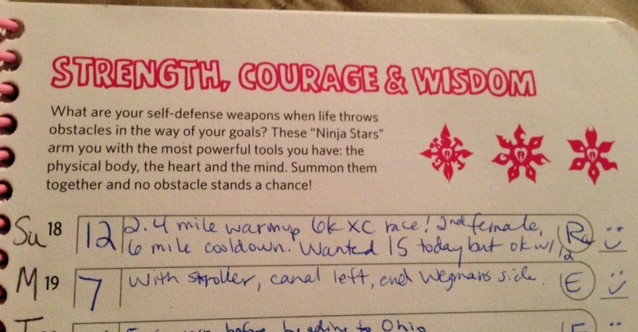 STRENGTH, COURAGE & WISDOM
What are your self-defense weapons when life throws
obstacles in the way of your goals? These "Ninja Stars"
arm you with the most powerful tools you have: the
physical body, the heart and the mind. Summon them
together and no obstacle stands a chance!
Su 18 12 2.4 mile warmup 6k XC race! 2nd female,
6 mile cooldown. Wanted 15 today but ok w/ 12
M 19 7 With stroller, canal left, end Wegmans side. E
before heading to Ohio